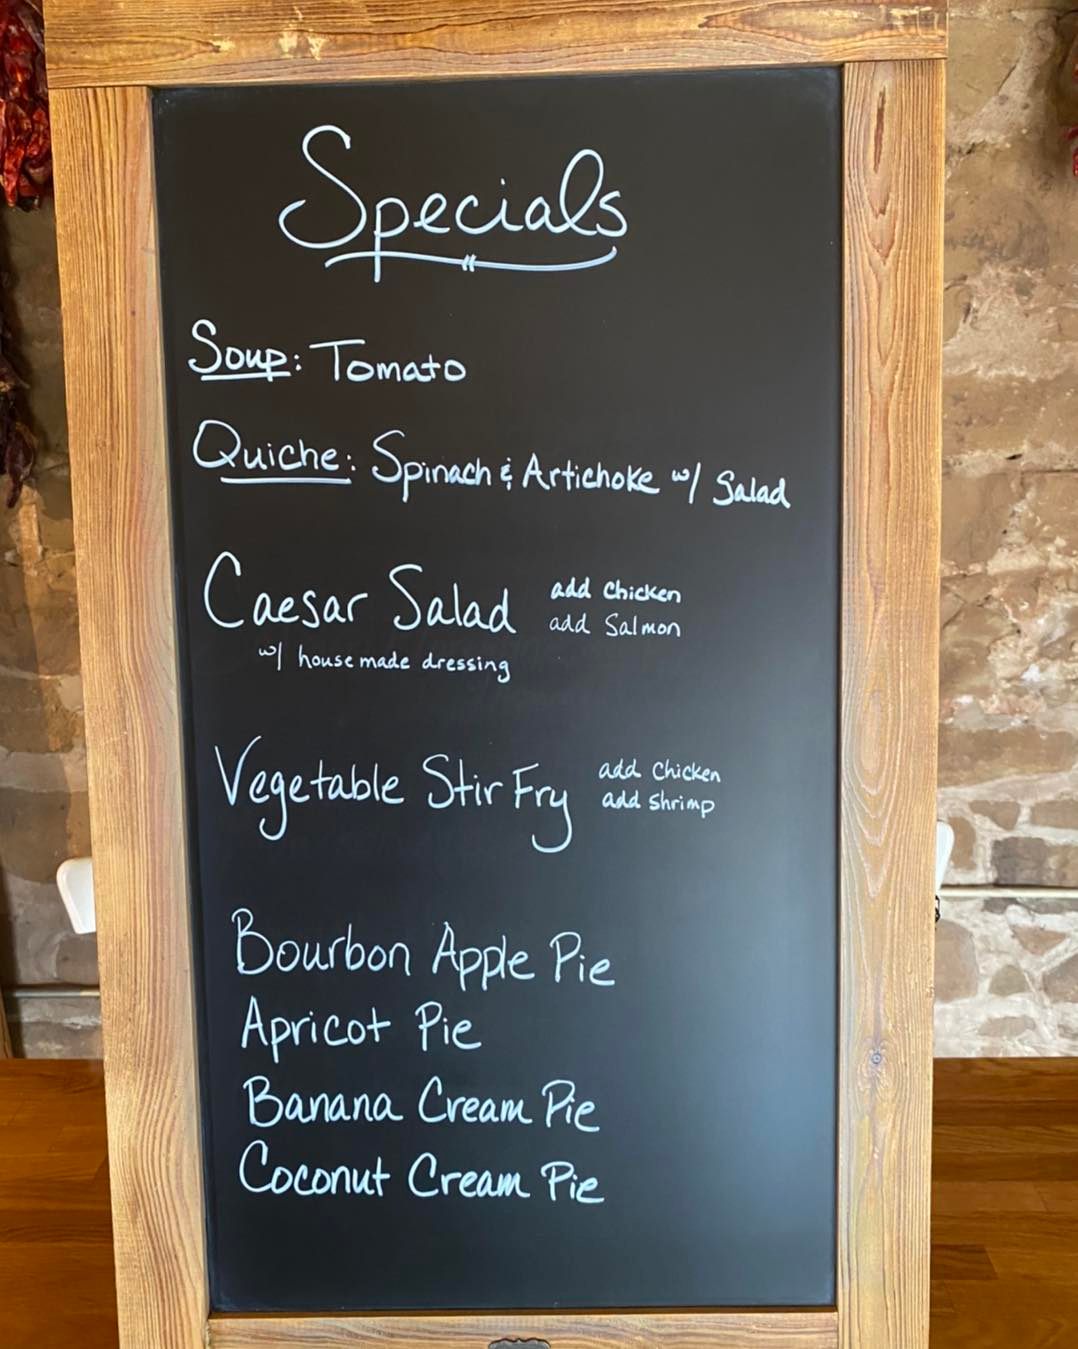 Specials
Soup: Tomato
Quiche: Spinach & Artichoke w/ Salad
Caesar Salad add chicken
add Salmon
w/ house made dressing
Vegetable Stir Fry add chicken
add shrimp
Bourbon Apple Pie
Apricot Pie
Banana Cream Pie
Coconut Cream Pie